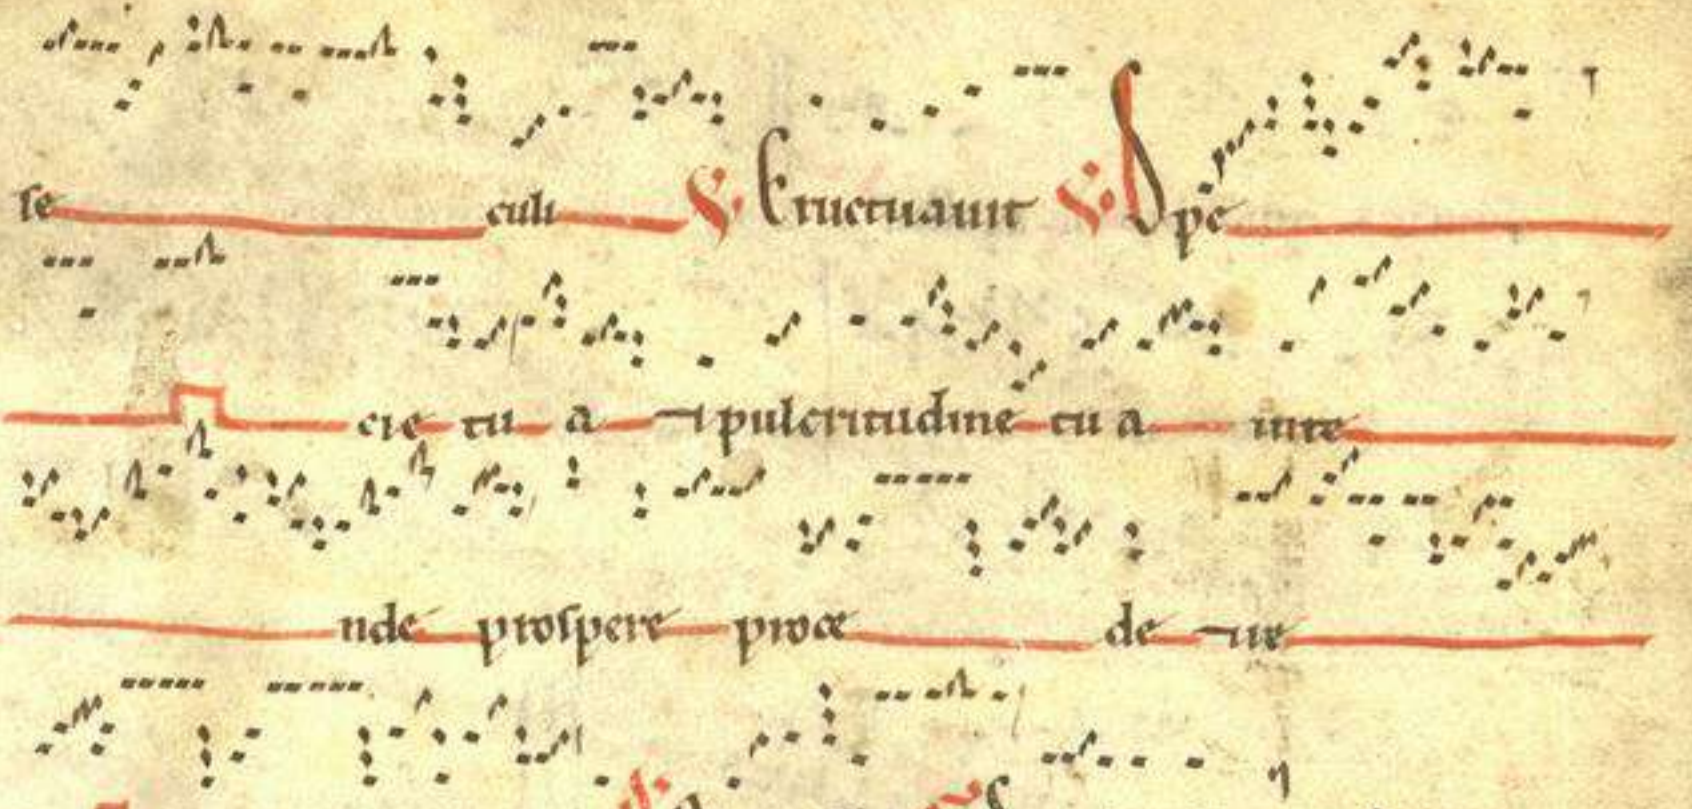 se culi V Eructuauit V Spe
cie tu a ⁊ pulcritudine tu a inte
nde prospere proce de ⁊ re